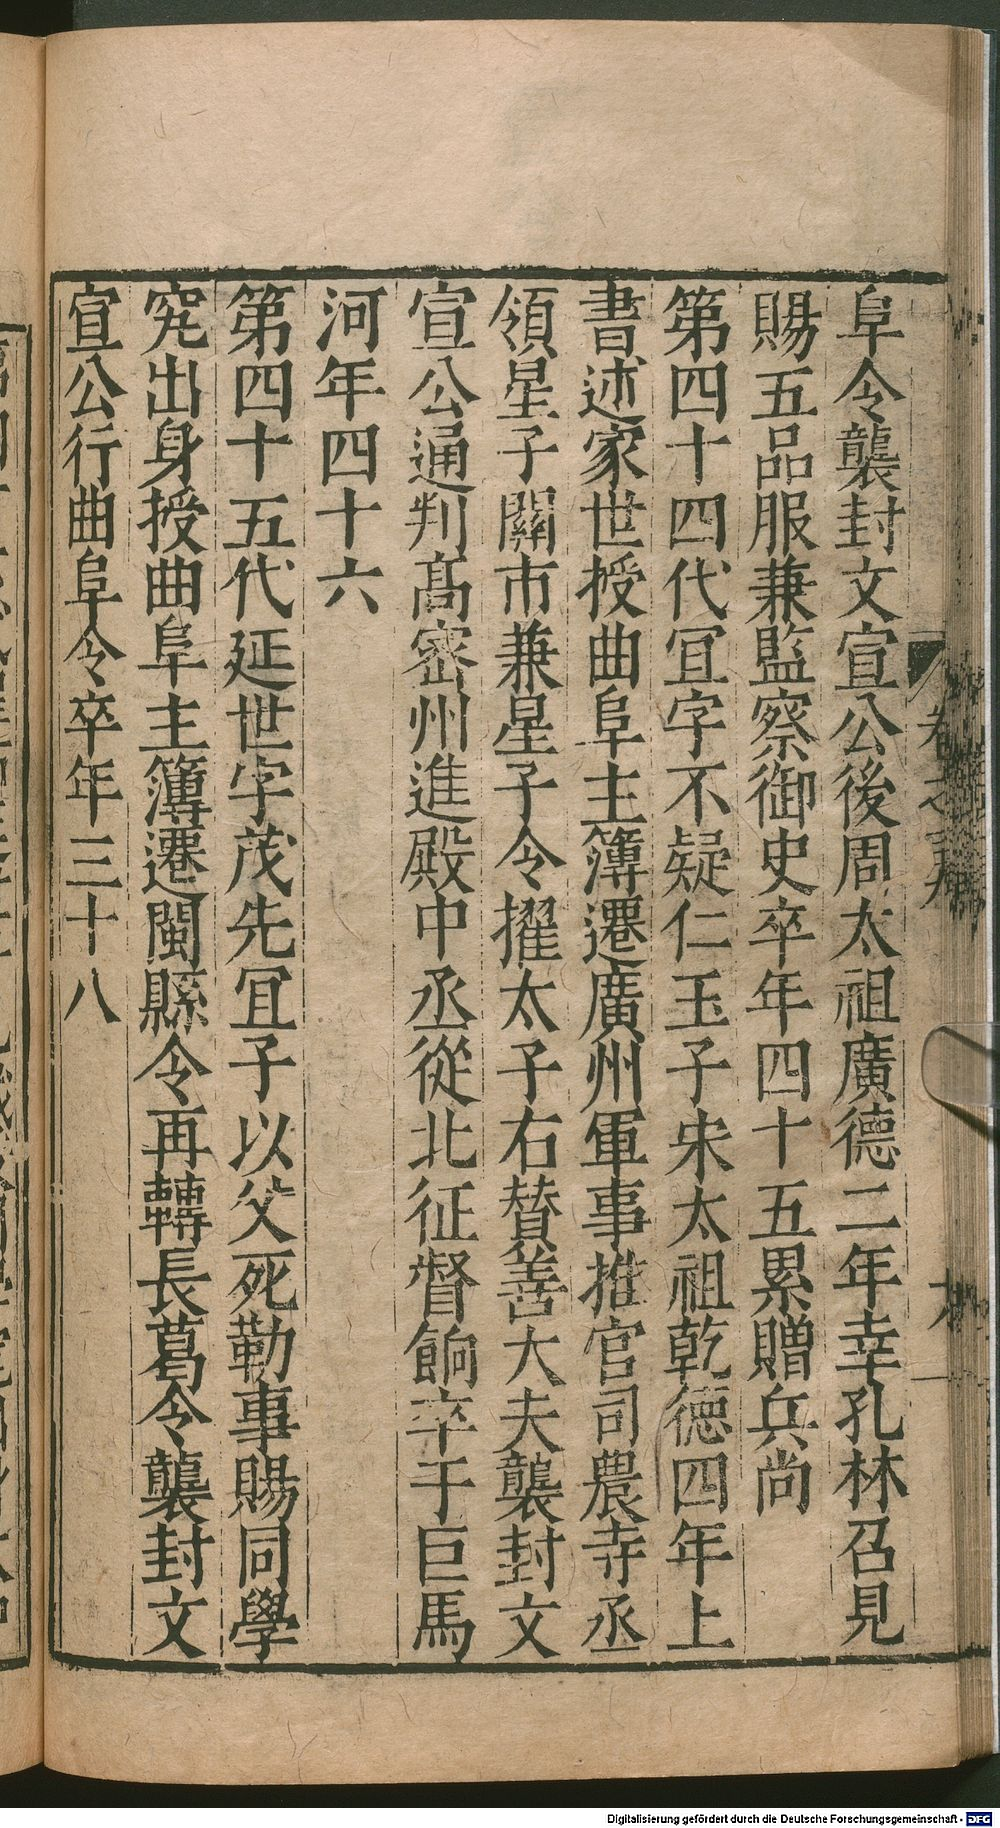 阜令襲封文宣公後周太祖廣德二年幸孔林召見
賜五品服兼監察御史卒年四十五累贈兵尚
第四十四代冝字不疑仁玉子宋太祖乾德四年上
書述家世授曲阜主簿遷廣州軍事推官司農寺丞
領星子關市兼星子令擢太子右贊善大夫襲封文
宣公通判髙宻州進殿中丞從北征督餉卒于巨馬
河年四十六
第四十五代延世字茂先冝子以父死勤事賜同學
究出身授曲阜主簿遷閩縣令再轉長葛令襲封文
宣公行曲阜令卒年三十八
Digitalisierung gefördert durch die Deutsche Forschungsgemeinschaft - DFG